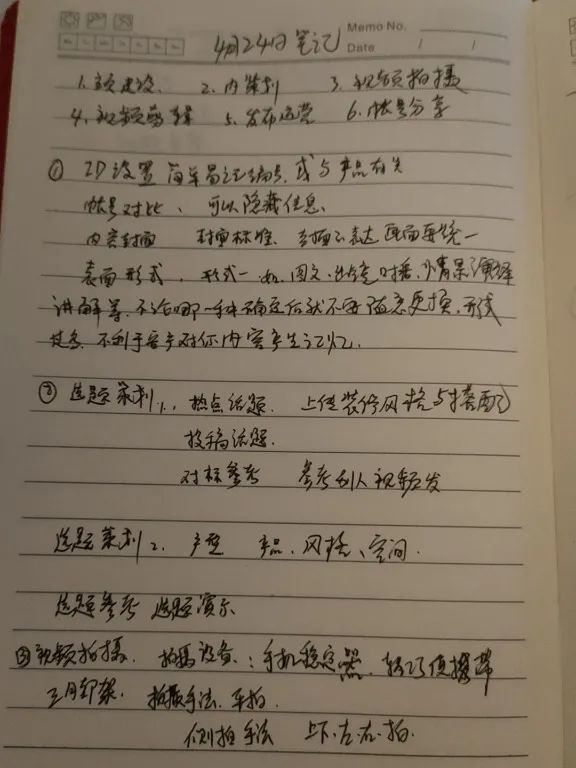 Memo No.
4月24日笔记
Date / /
1. 主页建设、 2. 内策划 3. 视频拍摄
4. 视频剪辑 5. 发布运营 6. 帐号分享
① ID设置 简单易记编号, 或与产品有关
帐号对比、可以隐藏信息、
内容封面 封面标准、封面 表达 画面要统一
表面形式、形式一 如、图文、 对话、情景演绎
讲解等、不论哪一种确定后就不要随意更换,形式
过多、不利于客户对你内容产生记忆.
② 选题策划1、热点话题、 上传装修风格与搭配
投稿话题.
对标参考 参考别人视频发
选题策划2、户型 产品、风格、空间.
选题参考 选题演示
视频拍摄、拍摄设备: 手机稳定器、 便携带
三脚架、拍摄手法、平拍.
侧拍手法 上.下.左.右.拍.